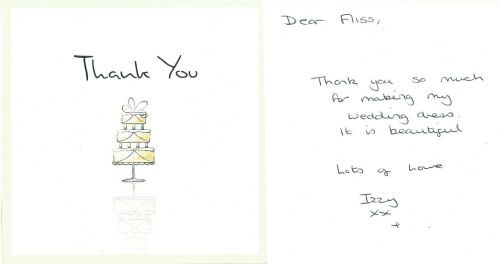 Thank You
Dear Fliss,
Thank you so much
for making my
wedding dress.
It is beautiful
Lots of love
Izzy
xx
x